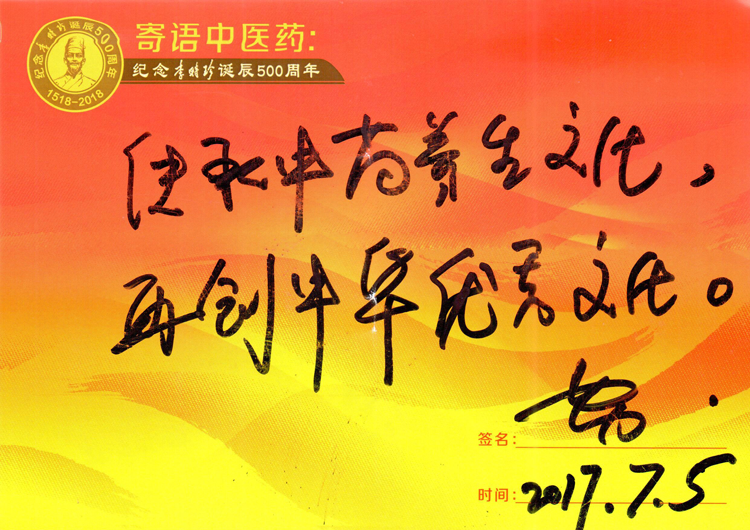 纪念李时珍诞辰500周年
1518-2018
寄语中医药:
纪念李时珍诞辰500周年
传承中养生文化，
再创中华优秀文化。
签名:
时间: 2017.7.5